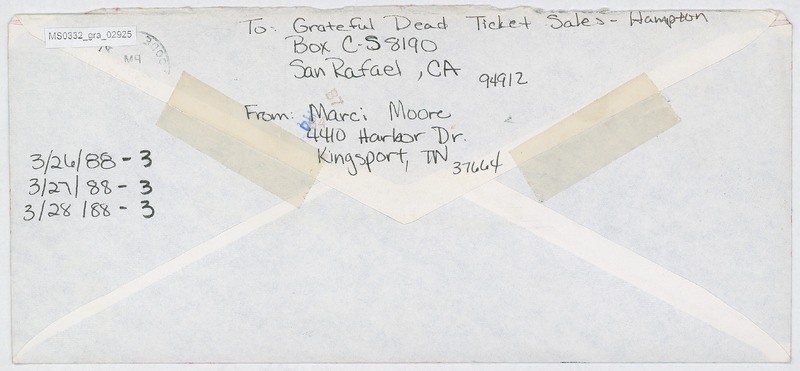 MS0332_gra_02925
To: Grateful Dead Ticket Sales - Hampton
Box C-S 8190
San Rafael, CA 94912
From: Marci Moore
4410 Harbor Dr.
Kingsport, TN 37664
3/26/88 - 3
3/27/88 - 3
3/28/88 - 3